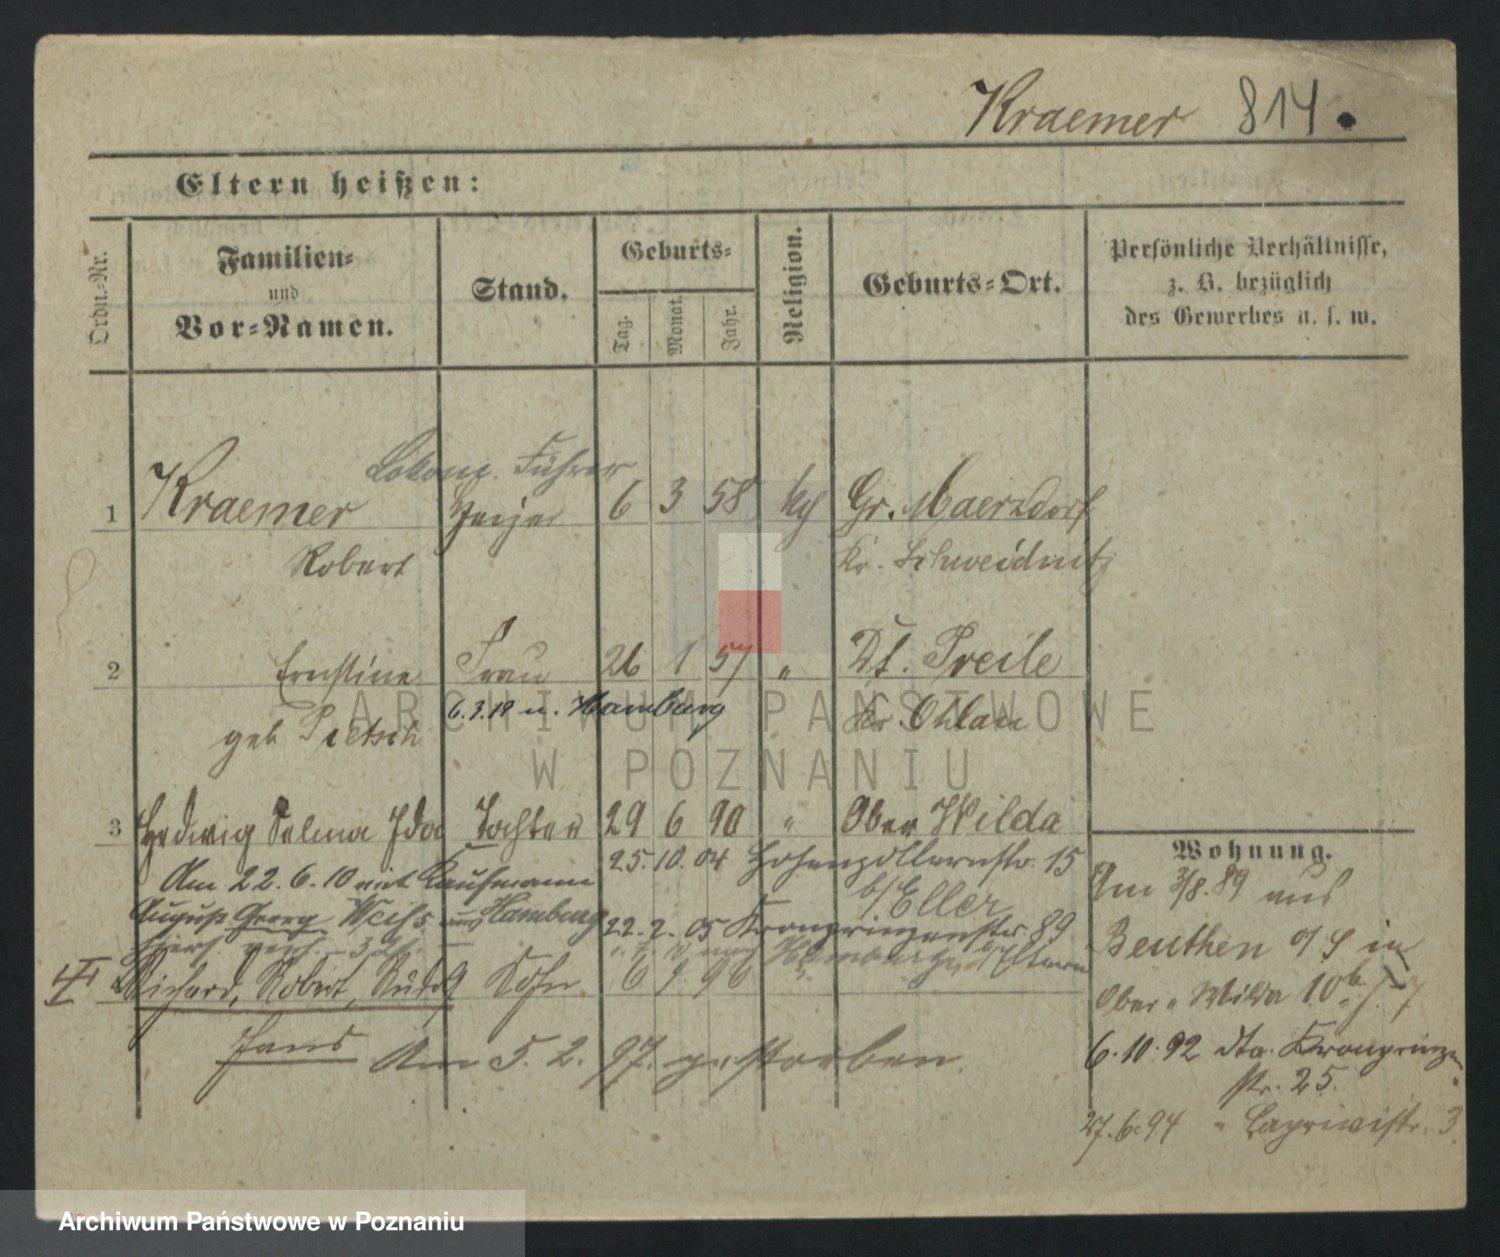 Kraemer 814.
Eltern heißen:
Ordn.-Nr.
Familien-
und
Vor-Namen.
Stand.
Geburts-
Tag.
Monat.
Jahr.
Religion.
Geburts-Ort.
Persönliche Verhältnisse,
z. B. bezüglich
des Gewerbes u. s. w.
Lokom. Führer
1 Kraemer Heizer 6 3 58 kg Gr. Maerzdorf
Robert Kr. Schweidnitz
2 Ernstine Frau 26 1 57 " Dt. Preile
6.3.18 n. Hamburg
geb Pietsch Kr Ohlau
ARCHIWUM PAŃSTWOWE
W POZNANIU
3 Hedwig Selma Ida Tochter 29 6 90 " Ober Wilda
Am 22.6.10 mit Kaufmann 25.10.04 Hohenzollernstr. 15
b/Eller
August Georg Weihs aus Hamburg 22.2.05 Kronprinzenstr. 89
Hamburg Eltern
Richard, Robert, Sohn 6 9 96
Hans Am 5.2.97. gestorben.
Wohnung.
Am 3/8.89 aus
Beuthen o/S in
Ober-Wilda 10b
6.10.92 dto. Kronprinzen
str. 25.
27.6.94 " Caprivistr. 3
Archiwum Państwowe w Poznaniu